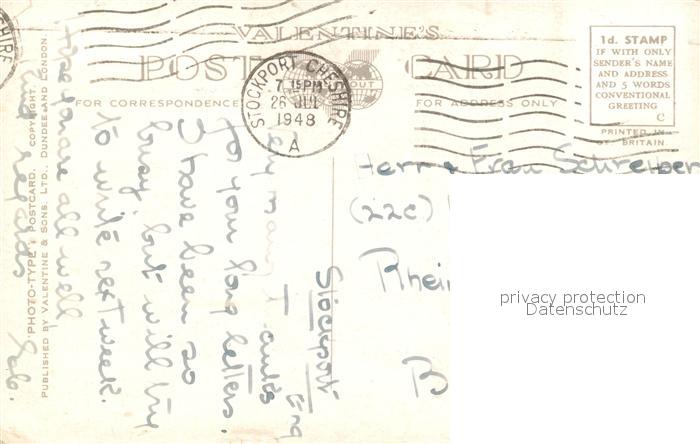 VALENTINE'S
POST CARD
FOR CORRESPONDENCE
FOR ADDRESS ONLY
1d. STAMP
IF WITH ONLY
SENDER'S NAME
AND ADDRESS
AND 5 WORDS
CONVENTIONAL
GREETING
C
PRINTED IN
GT. BRITAIN.
STOCKPORT CHESHIRE
7 15 PM
26 JUL
1948
A
"PHOTO-TYPE" POSTCARD. COPYRIGHT.
PUBLISHED BY VALENTINE & SONS, LTD., DUNDEE AND LONDON.
Stockport
Eng
many
for your long letters.
I have been so
busy but will try
to write next week.
are all well
regards
Herr & Frau Schreiber
(22c)
Rhein
B
privacy protection
Datenschutz